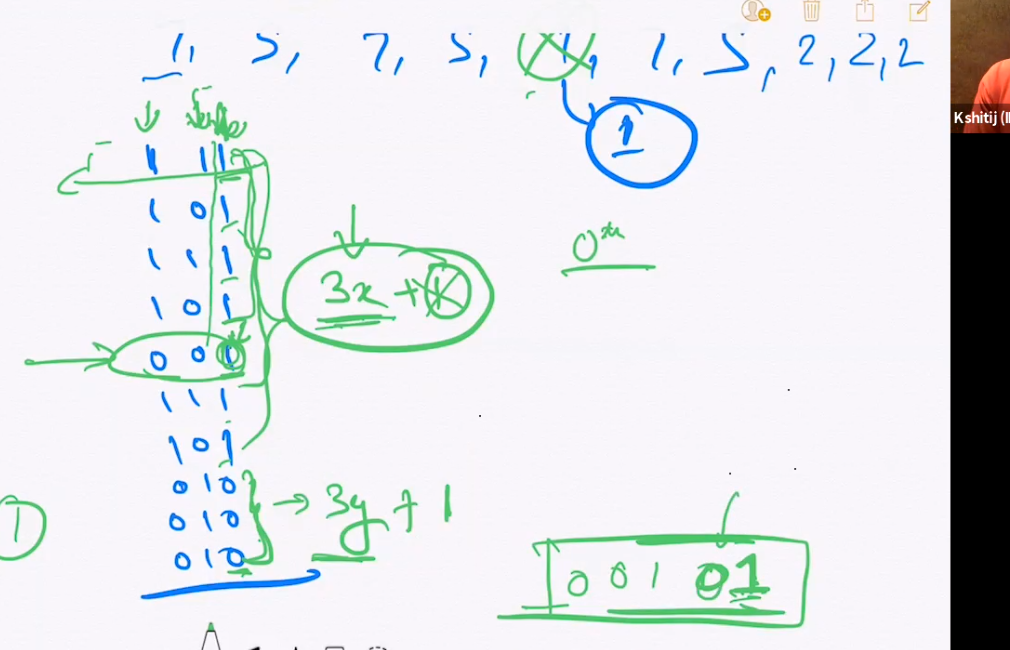 7, 5, 7, 5, 1, 7, 5, 2, 2, 2
1
1 1 1
1 0 1
1 1 1
1 0 1
0 0 1
1 1 1
1 0 1
0 1 0
0 1 0
0 1 0
3x + K
3y + 1
1
0 0 1 0 1
Kshitij (I